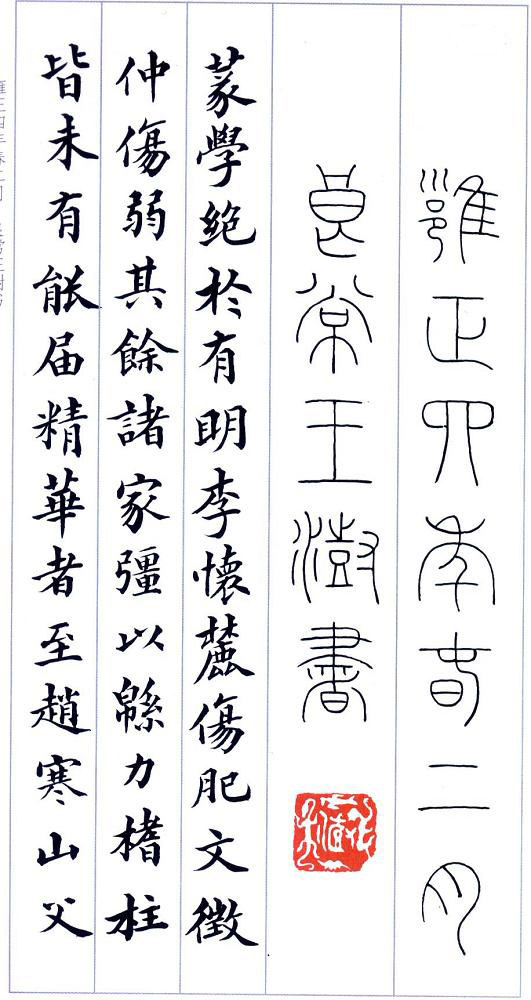 雝正四年春二月
良常王澍書
篆學絕於有明李懷麓傷肥文徵
仲傷弱其餘諸家彊以緜力榰柱
皆未有能届精華者至趙寒山父